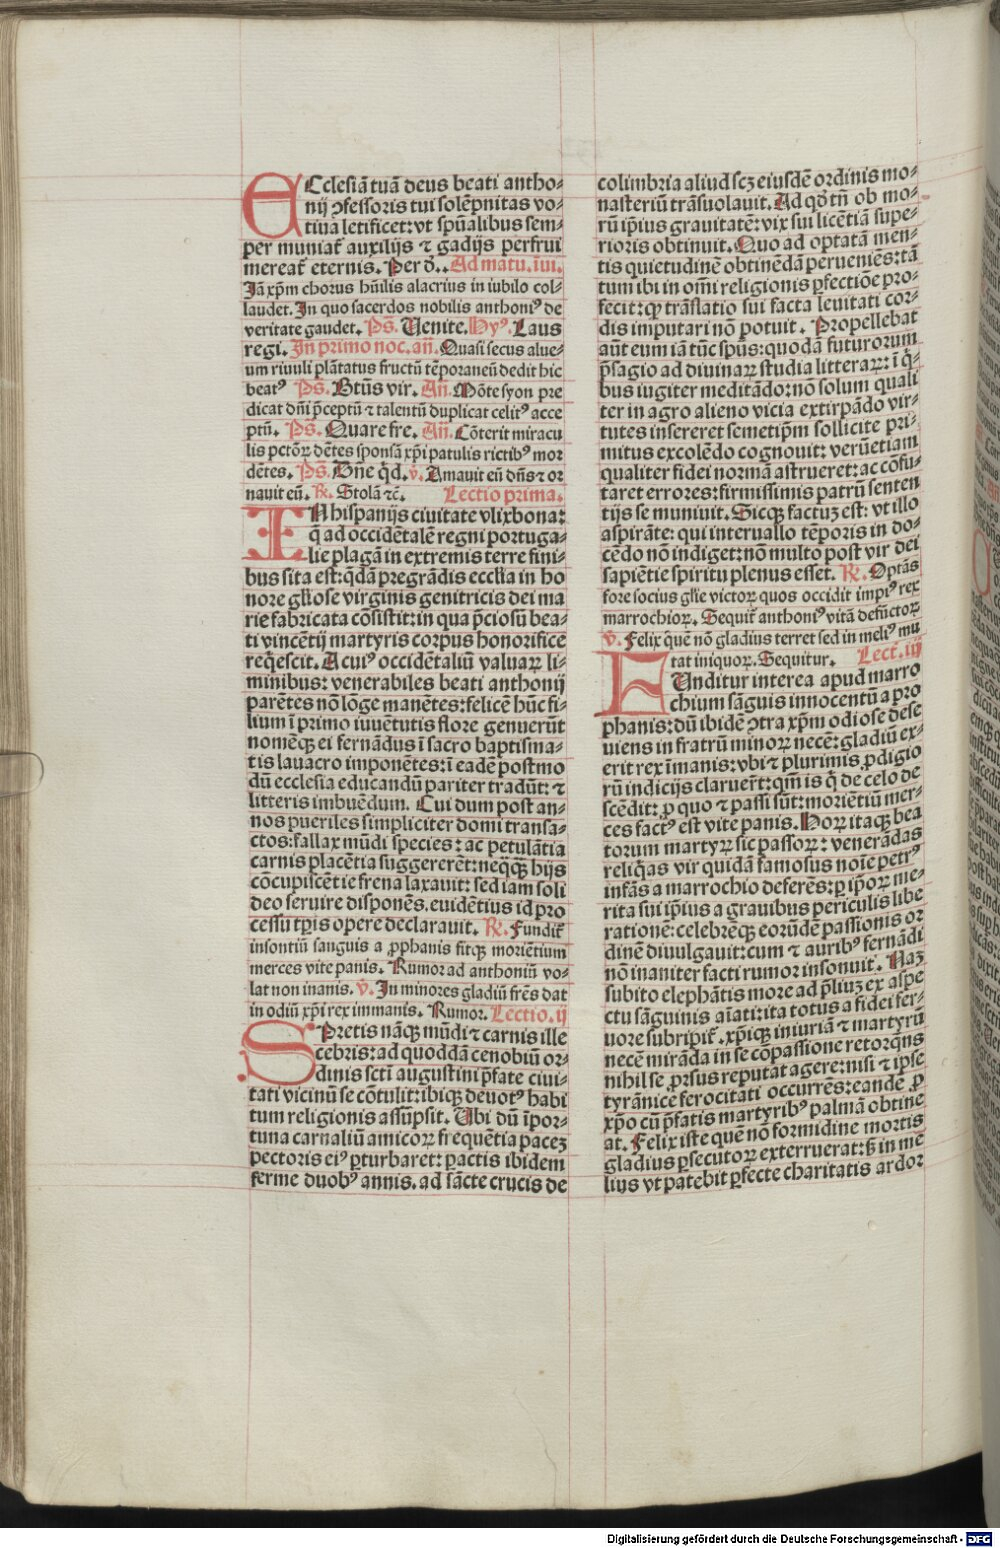 ECclesiã tuã deus beati antho⸗
nij ꝯfessoris tui solẽpnitas vo⸗
tiua letificet: vt spũalibus sem⸗
per muniat᷑ auxilijs ⁊ gadijs perfrui
mereat᷑ eternis. Per d̃.. Ad matu. ĩui.
Jã xp̃m chorus hũilis alacrius in iubilo col⸗
laudet. Jn quo sacerdos nobilis anthoniꝰ de
veritate gaudet. Ps̃. Uenite. Hyꝰ. Laus
regi. Jn primo noc. añ. Quasi secus alue⸗
um riuuli plãtatus fructũ tẽporaneũ dedit hic
beatꝰ Ps̃. Btũs vir. Añ. Mõte syon pre
dicat dñi p̃ceptũ ⁊ talentũ duplicat celitꝰ acce
ptũ. Ps̃. Quare fre. Añ. Cõterit miracu
lis pctõꝝ dẽtes sponsã xp̃i patulis rictibꝰ mor
dẽtes. Ps̃. Dñe q̃d. v̄. Amauit eũ dñs ⁊ or
nauit eũ. R̄. Stolã ⁊c̃. Lectio prima.
IN hispanijs ciuitate vlixbona:
q̃ ad occidẽtalẽ regni portuga⸗
lie plagã in extremis terre fini⸗
bus sita est: q̃dã pregrãdis eccl̃ia in ho
nore gl̃iose virginis genitricis dei ma
rie fabricata cõsistit: in qua p̃ciosũ bea⸗
ti vincẽtij martyris corpus honorifice
req̃escit. A cuiꝰ occidẽtaliũ valuaꝝ li⸗
minibus: venerabiles beati anthonij
parẽtes nõ lõge manẽtes: felicẽ hũc fi⸗
lium ĩ primo iuuẽtutis flore genuerũt
nomẽqꝫ ei fernãdus ĩ sacro baptisma⸗
tis lauacro imponẽtes: ĩ eadẽ postmo
dũ ecclesia educandũ pariter tradũt: ⁊
litteris imbuẽdum. Cui dum post an⸗
nos pueriles simpliciter domi transa⸗
ctos: fallax mũdi species: ac petulãtia
carnis placẽtia suggererẽt: neq̃qꝫ hijs
cõcupiscẽtie frena laxauit: sed iam soli
deo seruire disponẽs. euidẽtius id pro
cessu tp̃is opere declarauit. R̄. Fundit᷑
insontiũ sanguis a ꝓphanis fitqꝫ moriẽtium
merces vite panis. Rumor ad anthoniũ vo⸗
lat non inanis. v̄. Jn minores gladiũ frẽs dat
in odiũ xp̃i rex immanis. Rumor. Lectio. ij
SPretis nãqꝫ mũdi ⁊ carnis ille
cebris: ad quoddã cenobiũ or⸗
dinis sctĩ augustini p̃fate ciui⸗
tati vicinũ se cõtulit: ibiqꝫ deuotꝰ habi
tum religionis assũpsit. Ubi dũ ĩpor⸗
tuna carnaliũ amicoꝝ frequẽtia paceꝫ
pectoris eiꝰ ꝑturbaret: ꝑactis ibidem
ferme duobꝰ annis. ad sãcte crucis de
colimbria aliud scꝫ eiusdẽ ordinis mo⸗
nasteriũ trãsuolauit. Ad qd̃ tñ ob mo⸗
rũ ip̃ius grauitatẽ: vix sui licẽtiã supe⸗
rioris obtinuit. Quo ad optatã men⸗
tis quietudinẽ obtinẽdã perueniẽs: tã
tum ibi in om̃i religionis ꝑfectiõe pro⸗
fecit: ꝙ trãslatio sui facta leuitati cor⸗
dis imputari nõ potuit. Propellebat
aũt eum iã tũc spũs: quodã futurorum
p̃sagio ad diuinaꝝ studia litteraꝝ: ĩ q̃⸗
bus iugiter meditãdo: nõ solum quali
ter in agro alieno vicia extirpãdo vir⸗
tutes insereret semetip̃m sollicite pri⸗
mitus excolẽdo cognouit: verũetiam
qualiter fidei normã astrueret: ac cõfu⸗
taret errores: firmissimis patrũ senten
tijs se muniuit. Sicqꝫ factuꝫ est: vt illo
aspirãte: qui interuallo tẽporis in do⸗
cẽdo nõ indiget: nõ multo post vir dei
sapiẽtie spiritu plenus esset. R̄. Optãs
fore socius gl̃ie victoꝝ quos occidit impiꝰ rex
marrochioꝝ. Sequit᷑ anthoniꝰ vitã defũctoꝝ
v̄. Felix quẽ nõ gladius terret sed in meliꝰ mu
tat iniquoꝝ. Sequitur. Lect. iij
FUnditur interea apud marro
chium sãguis innocentũ a pro
phanis: dũ ibidẽ ꝯtra xp̃m odiose dese
uiens in fratrũ minoꝝ necẽ: gladiũ ex⸗
erit rex ĩmanis: vbi ⁊ plurimis ꝓdigio
rũ indicijs claruer̃t: qm̃ is q̃ de celo de
scẽdit: ꝓ quo ⁊ passi sũt: moriẽtiũ mer⸗
ces factꝰ est vite panis. Hoꝝ itaqꝫ bea
torum martyꝝ sic passoꝝ: venerãdas
reliq̃as vir quidã famosus noĩe petrꝰ
infãs a marrochio deferẽs: ꝑ ip̃oꝝ me⸗
rita sui ip̃ius a grauibus periculis libe
rationẽ: celebrẽqꝫ eorũdẽ passionis or
dinẽ diuulgauit: cum ⁊ auribꝰ fernãdi
nõ inaniter facti rumor insonuit. Naꝫ
subito elephãtis more ad p̃liuꝫ ex aspe
ctu sãguinis aĩati: ita totus a fidei fer⸗
uore subripit᷑. xp̃iqꝫ iniuriã ⁊ martyrũ
necẽ mirãda in se cõpassione retorq̃ns
nihil se ꝓrsus reputat agere: nisi ⁊ ip̃se
tyrãnice ferocitati occurrẽs: eandẽ ꝓ
xp̃o cũ p̃fatis martyribꝰ palmã obtine
at. Felix iste quẽ nõ formidine mortis
gladius ꝑsecutoꝝ exterruerat: ß in me
lius vt patebit ꝑfecte charitatis ardor
Digitalisierung gefördert durch die Deutsche Forschungsgemeinschaft - DFG